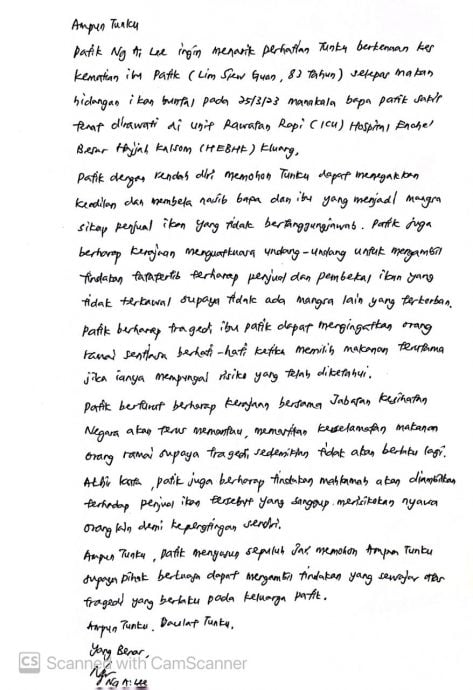 Ampun Tunku
Patik Ng Ai Lee ingin menarik perhatian Tunku berkenaan kes
kematian ibu patik (Lim Siew Guan, 83 tahun) selepas makan
hidangan ikan buntal pada 25/3/23 manakala bapa patik sakit
tenat dirawati di unit Rawatan Rapi (ICU) Hospital Enche'
Besar Hajjah Kalsom (HEBHK) Kluang,
Patik dengan rendah diri memohon Tunku dapat menegakkan
keadilan dan membela nasib bapa dan ibu yang menjadi mangsa
sikap penjual ikan yang tidak bertanggungjawab. Patik juga
berharap kerajaan menguatkuasa undang-undang untuk mengambil
tindakan tatatertib terharap penjual dan pembekal ikan yang
tidak terkawal supaya tidak ada mangsa lain yang terkorban.
Patik berharap tragedi ibu patik dapat mengingatkan orang
ramai sentiasa berhati-hati ketika memilih makanan terutama
jika ianya mempunyai risiko yang telah diketahui.
Patik berturut berharap kerajaan bersama Jabatan Kesihatan
Negara akan terus memantau, memastikan keselamatan makanan
orang ramai supaya tragedi sedemikian tidak akan berlaku lagi.
Akhir kata, patik juga berharap tindakan mahkamah akan diambilkan
terhadap penjual ikan tersebut yang sanggup merisikokan nyawa
orang lain demi kepentingan sendiri.
Ampun Tunku, patik menyusun sepuluh jari memohon Ampun Tunku
supaya pihak berkuasa dapat mengambil tindakan yang sewajar atas
tragedi yang berlaku pada keluarga patik.
Ampun Tunku. Daulat Tunku.
Yang Benar,
Ng Ai Lee
CS Scanned with CamScanner